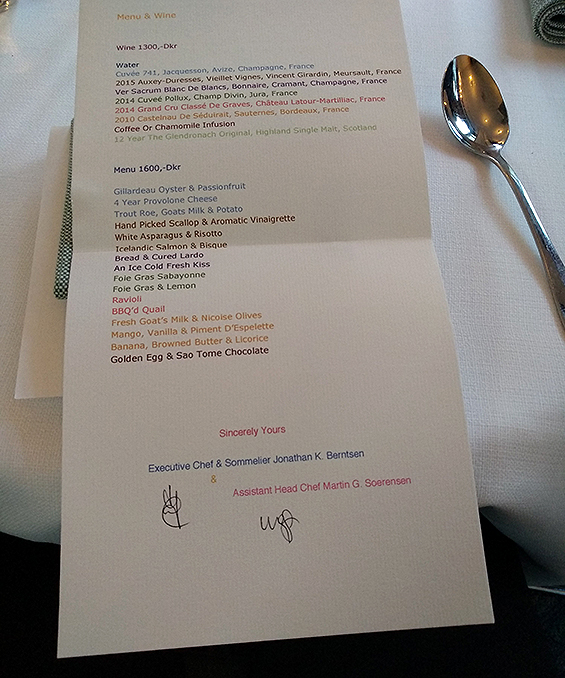 Menu & Wine
Wine 1300,-Dkr
Water
Cuvée 741, Jacquesson, Avize, Champagne, France
2015 Auxey-Duresses, Vieillet Vignes, Vincent Girardin, Meursault, France
Ver Sacrum Blanc De Blancs, Bonnaire, Cramant, Champagne, France
2014 Cuveé Pollux, Champ Divin, Jura, France
2014 Grand Cru Classé De Graves, Château Latour-Martilliac, France
2010 Castelnau De Séduirait, Sauternes, Bordeaux, France
Coffee Or Chamomile Infusion
12 Year The Glendronach Original, Highland Single Malt, Scotland
Menu 1600,-Dkr
Gillardeau Oyster & Passionfruit
4 Year Provolone Cheese
Trout Roe, Goats Milk & Potato
Hand Picked Scallop & Aromatic Vinaigrette
White Asparagus & Risotto
Icelandic Salmon & Bisque
Bread & Cured Lardo
An Ice Cold Fresh Kiss
Foie Gras Sabayonne
Foie Gras & Lemon
Ravioli
BBQ'd Quail
Fresh Goat's Milk & Nicoise Olives
Mango, Vanilla & Piment D'Espelette
Banana, Browned Butter & Licorice
Golden Egg & Sao Tome Chocolate
Sincerely Yours
Executive Chef & Sommelier Jonathan K. Berntsen
&
Assistant Head Chef Martin G. Soerensen